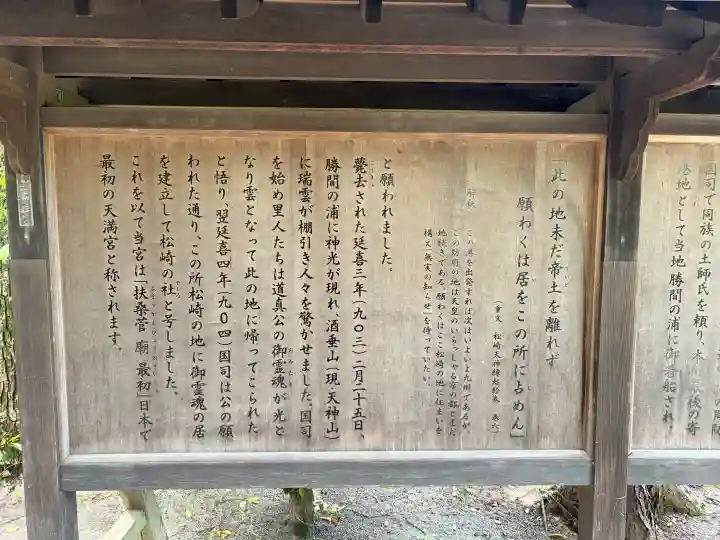 国司で同族の土師氏を頼り、本
港地として当地勝間の浦に御着船され、
「此の地未だ帝土を離れず
願わくは居をこの所に占めん」
(重文 松崎天神縁起絵巻 巻六)
解釈
この港を出発すれば次はいよいよ九州であるが、
この防府の地は天皇のいらっしゃる京の都とまだ
地続きである。願わくはここ松崎の地に住まいを
構え無実の知らせを待っていたい。
と願われました。
薨去された延喜三年(九〇三)二月二十五日、
勝間の浦に神光が現れ、酒垂山(現・天神山)
に瑞雲が棚引き人々を驚かせました。国司
を始め里人たちは道真公の御霊魂が光と
なり雲となって此の地に帰ってこられた
と悟り、翌延喜四年(九〇四)国司は公の願
われた通り、この所松崎の地に御霊魂の居
を建立して松崎の社と号しました。
これを以て当宮は「扶桑菅廟最初」日本で
最初の天満宮と称されます。